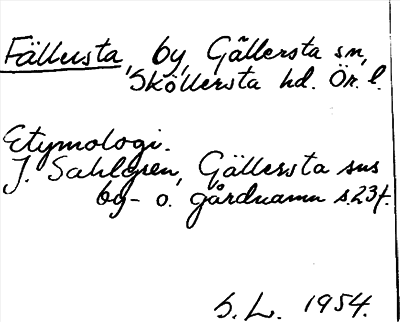 Fällersta, by, Gällersta sn,
Sköllersta hd. Ör. l.
Etymologi.
J. Sahlgren, Gällersta sns
by- o. gårdnamn s. 23 f.
S. L. 1954.